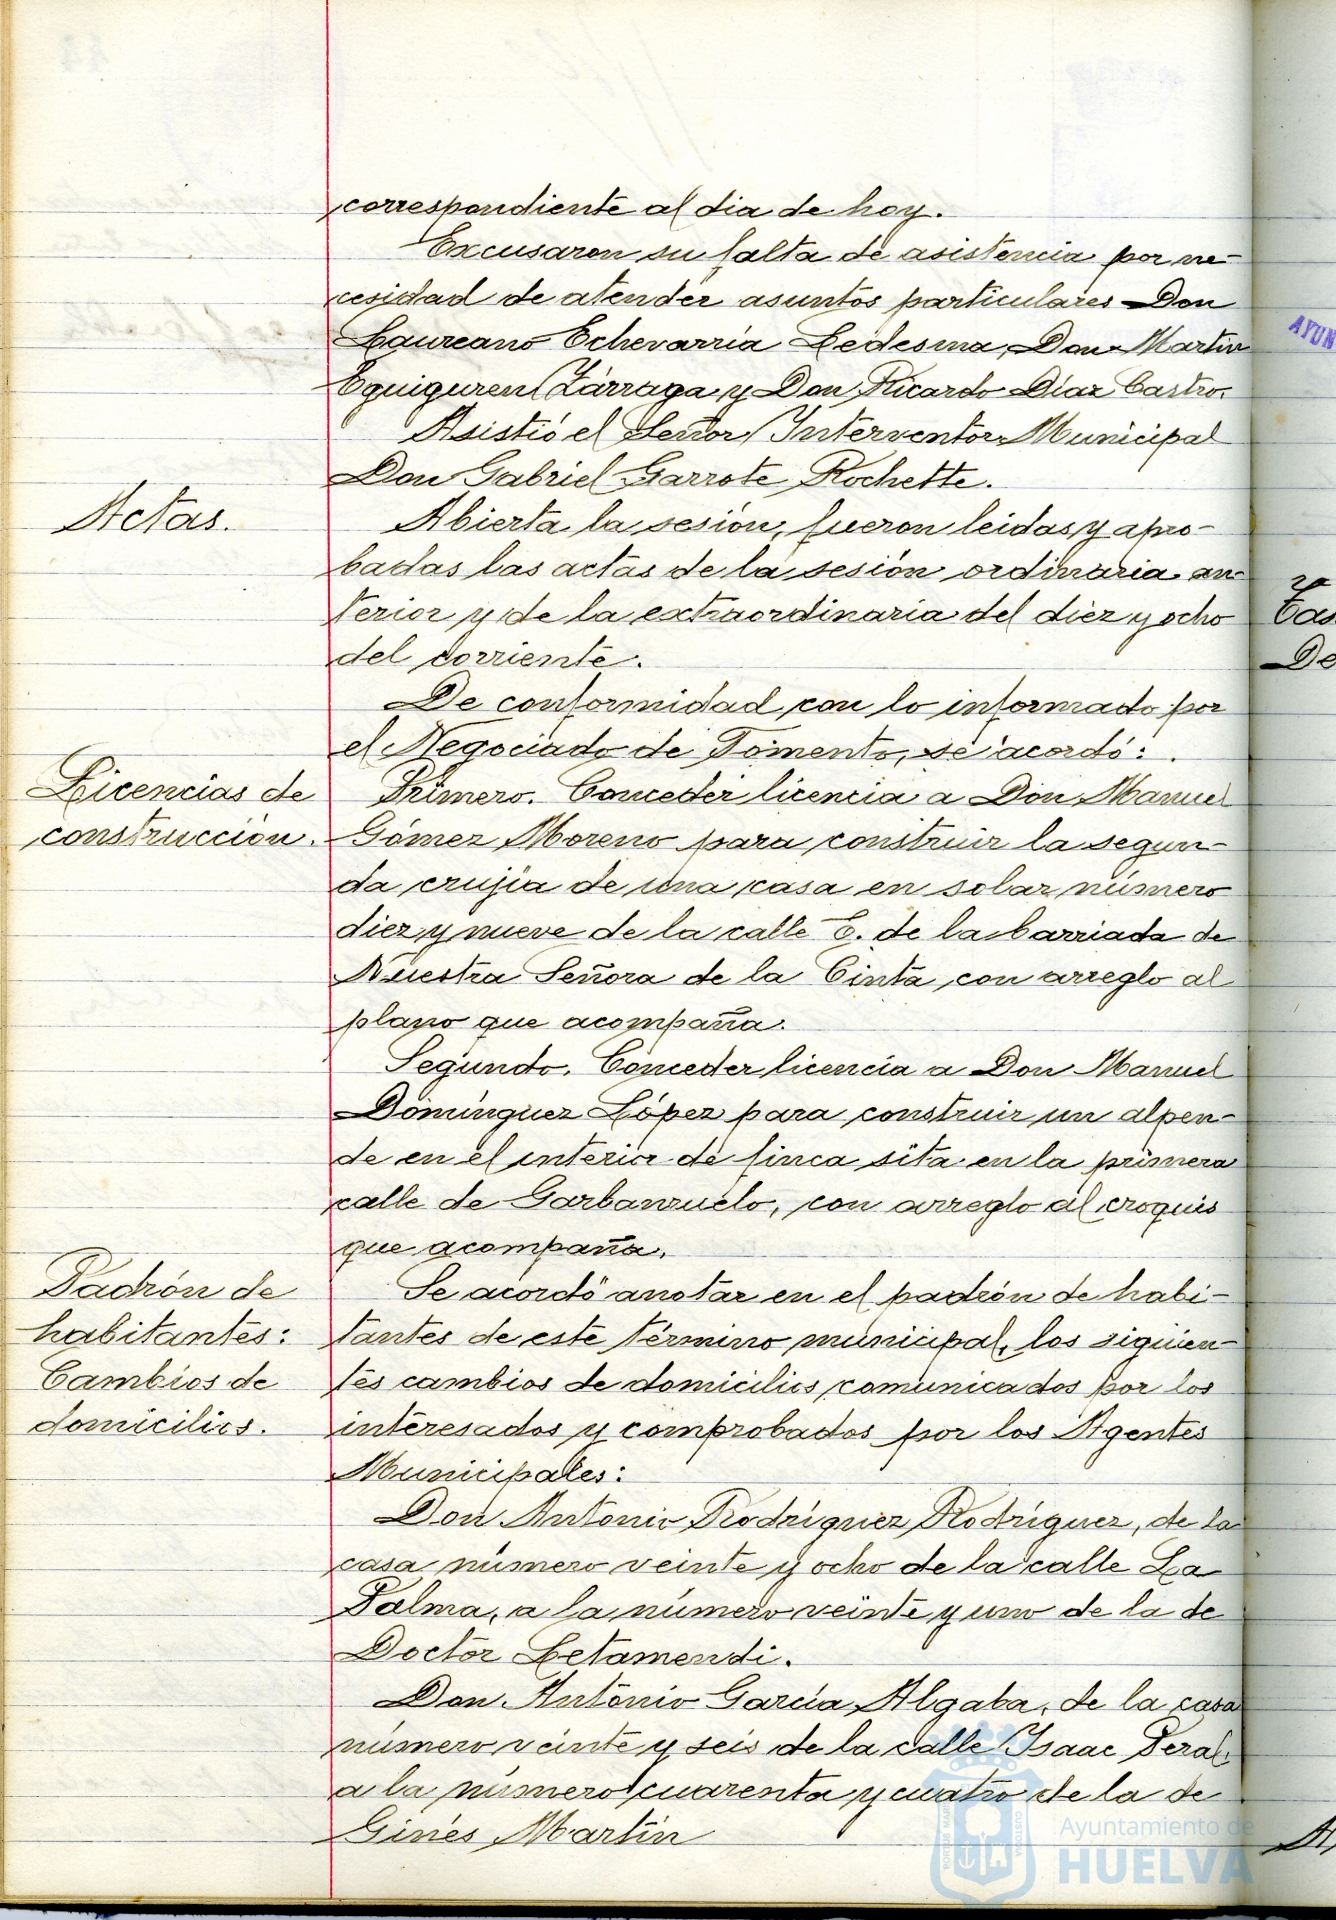 correspondiente al dia de hoy.
Excusaron su falta de asistencia por ne-
cesidad de atender asuntos particulares Don
Laureano Echevarría Ledesma, Don Martin
Eguiguren Zárraga y Don Ricardo Díaz Castro.
Asistió el Señor Interventor Municipal
Don Gabriel Garrote Rochette.
Actas.
Abierta la sesión, fueron leidas y apro-
badas las actas de la sesión ordinaria an-
terior y de la extraordinaria del diez y ocho
del corriente.
De conformidad con lo informado por
el Negociado de Fomento, se acordó:
Licencias de
construcción.
Primero. Conceder licencia a Don Manuel
Gómez Moreno para construir la segun-
da crujía de una casa en solar número
diez y nueve de la calle E. de la barriada de
Nuestra Señora de la Cinta, con arreglo al
plano que acompaña.
Segundo. Conceder licencia a Don Manuel
Domínguez López para construir un alpen-
de en el interior de finca sita en la primera
calle de Garbanzuelo, con arreglo al croquis
que acompaña.
Padrón de
habitantes:
Cambios de
domicilios.
Se acordó anotar en el padrón de habi-
tantes de este término municipal, los siguien-
tes cambios de domicilios comunicados por los
interesados y comprobados por los Agentes
Municipales:
Don Antonio Rodríguez Rodríguez, de la
casa número veinte y ocho de la calle La
Palma, a la número veinte y uno de la de
Doctor Letamendi.
Don Antonio García Algaba, de la casa
número veinte y seis de la calle Isaac Peral,
a la número cuarenta y cuatro de la de
Ginés Martín
AYUN
Tas
De
Ayuntamiento de
HUELVA